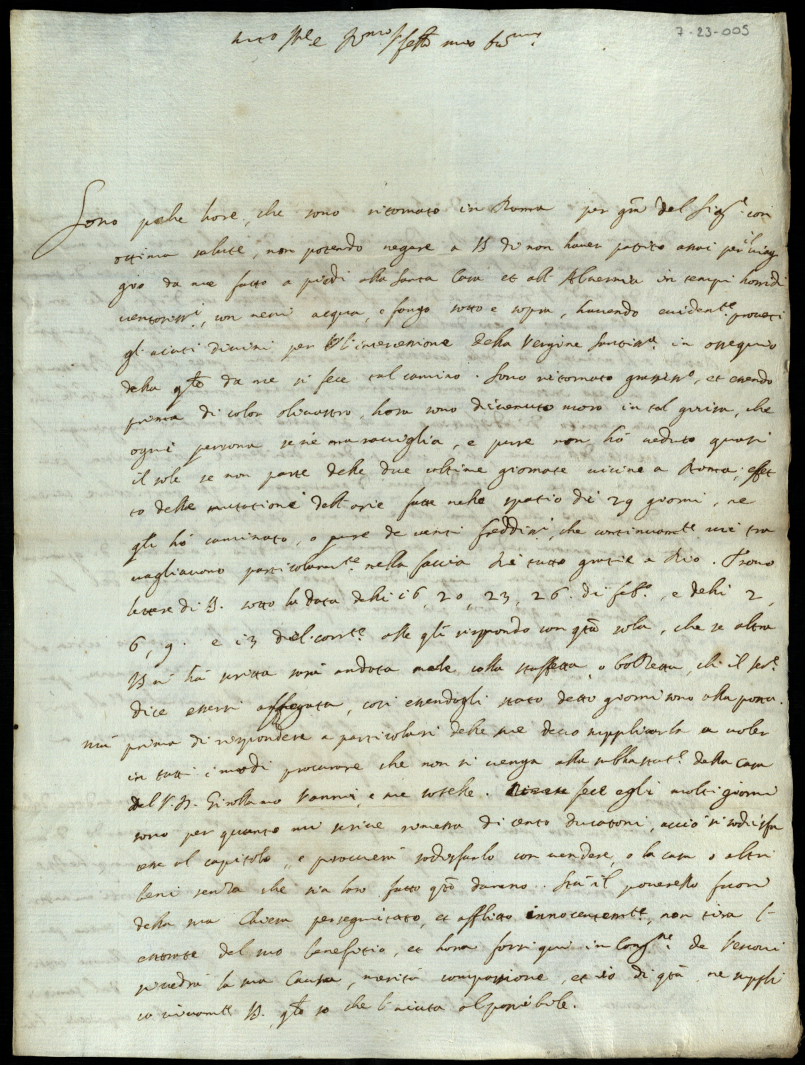 7-23-005
Sono poche hore, che sono ritornato in Roma per gra del Sigre con
ottima salute, non potendo negare a V. di non haver patito assai per il viag
gio da me fatto a piedi alla Santa Casa et all' Alvernia in tempi horridi
ventosissi, con nevi acqua, e fango sotto e sopra, havendo evidente provati
gl'aiuti divini per l'intercessione della Vergine Santissa in ossequio
della qle da me si fece tal camino. Sono ritornato grassisso, et essendo
prima di color olivastro, hora sono divenuto moro in tal guisa, che
ogni persona se ne maraviglia, e pure non hò veduto quasi
il sole se non parte delle due ultime giornate vicine a Roma, effet
to della mutatione dell'arie fatta nello spatio dei 29 giorni, ne
qli hò caminato, o pure de venti freddissi, che continuamte mi tra
vagliavono particolarmte nella faccia. Di tutto gratie a Dio. Trovo
lettere di V. sotto la data delli 16, 20, 23, 26. di febo, e delli 2,
6, 9. e 13 del corrte. alle qli rispondo con qta sola, che se altra
V. n' hà scritta sarà andata male colla staffetta, o bolzetta, che il
dice essersi affogata, così essendogli stato detto giorni sono alla posta.
Mà prima di rispondere a particolari delle sue devo supplicarla a voler
in tutti i modi procurare che non si venga alla subhastate della Casa
del S. D. Girolamo Vannni, e sue sorelle. fece egli molti giorni
sono per quanto mi scrive rimessa di cento ducatoni, acciò si sodisfa
cesse al capitolo, e procurerà sodisfarlo con vendere, o la casa o altri
beni senza che sia loro fatto qto danno. Stà il poverello fuori
della sua Chiesa perseguitato, et afflitto innocentemte, non tira l'
entrate del suo benefitio, et hora forsi qui in Congne de Vescovi
si vedrà la sua Causa, merita compassione, et io di qta ne suppli
co vivamte V. qto so che l'aiuta al possibile.